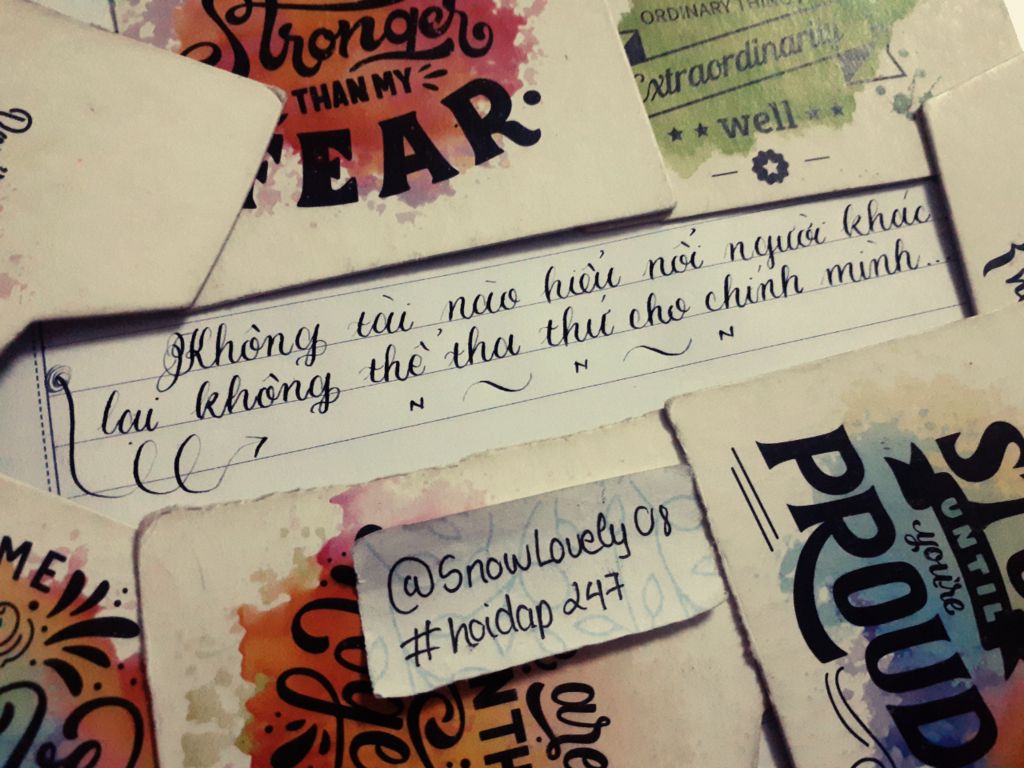 Stronger
THAN MY
FEAR.
Extraordinarily
well
Không tài nào hiểu nổi người khác
lại không thể tha thứ cho chính mình...
N ~ N ~ N
@SnowLovely08
#hoidap247
ME
are
UNTIL
you're
PROUD